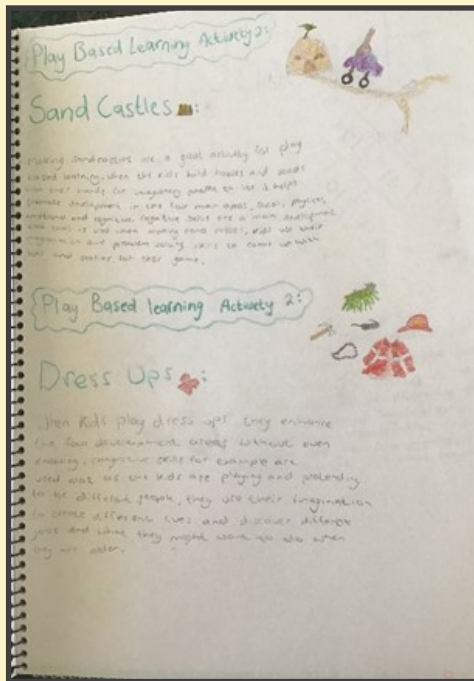 Play Based Learning Activity 2:
Sand Castles :
Making sandcastles are a great activity for play
based learning. When the kids build houses and roads
for imaginary people to use it helps
promote development in the four main areas, social, physical,
emotional and cognitive. Cognitive skills are a main development
used when making, kids use their
imagination and problem solving skills to come up with
and stories for their game.
Play Based learning Activity 2:
Dress Ups :
When kids play dress ups they enhance
the four development areas without even
knowing, cognitive skills for example are
used as the kids are playing and pretending
to be different people, they use their imagination
to create different lives and discover different
jobs and what they might want to do when
they are older.